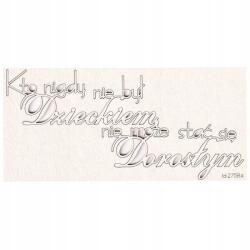 Kto nigdy nie był
Dzieckiem,
nie może stać się
Dorosłym